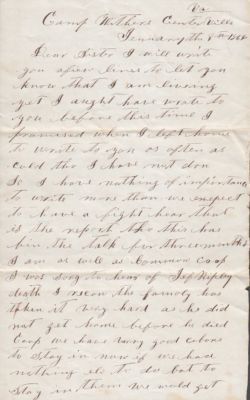 Va
Camp Withers Centerville
January the 8th 186
Dear Sister I will write
you a few lines to let you
know that I am liveing
yet I aught have wrote to
you before this time I
promised when I left home
to write to you as often as
I could tho I have not don
so I have nothing of importance
to write more than we expect
to have a fight hear that
is the report tho this has
bin the talk for three months
I am as well as common Coop
I was sory to hear of Jef Ripley
death I recon the family has
taken it very hard as he did
not get home before he died
Coop we have very good cabens
to stay in now if we had
nothing els to do but to
stay in them we wold get